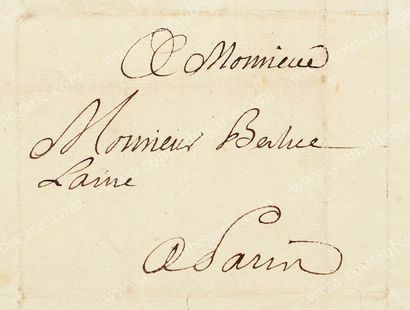 A Monsieur
Monsieur Berluc
Laine
A Paris